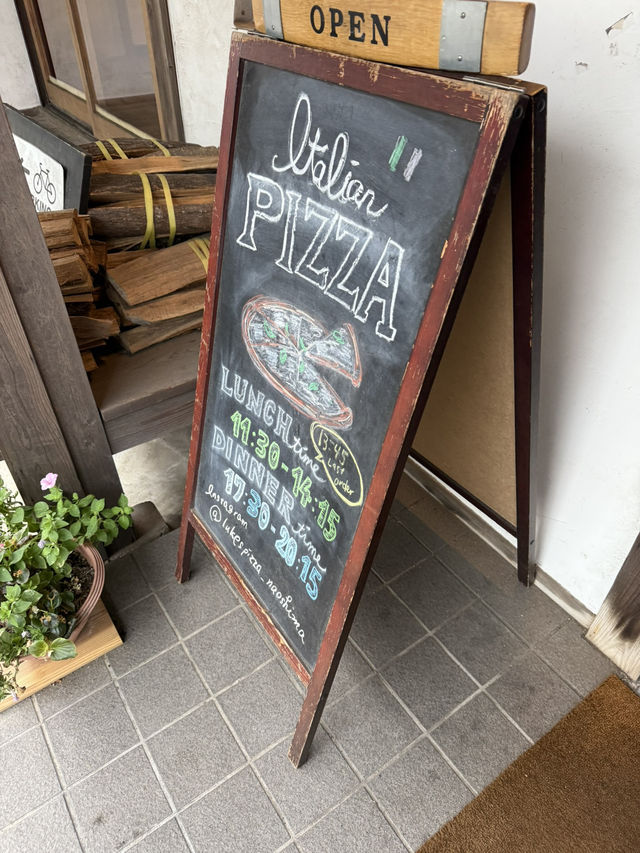 OPEN
Italian
PIZZA
LUNCH time
11:30-14:15
13:45
Last
order
DINNER time
17:30-20:15
Instagram
@lukespizza_naoshima